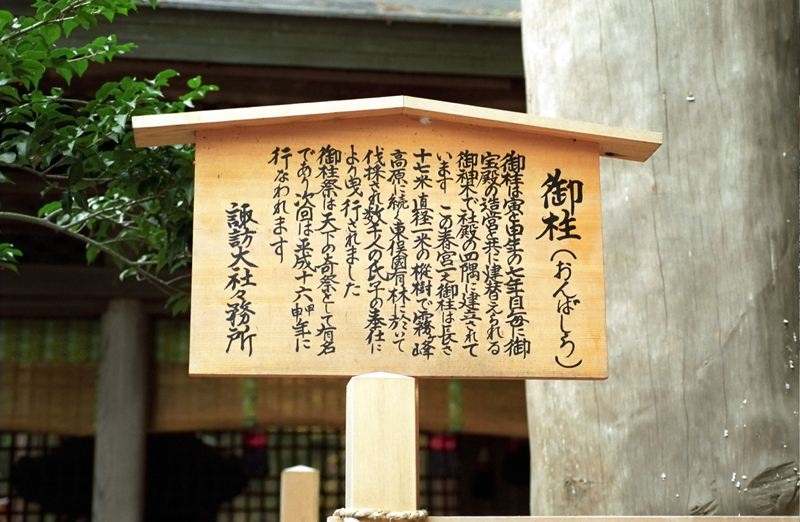 御柱(おんばしら)
御柱は寅と申年の七年目毎に御
宝殿の造営と共に建替えられる
御神木で社殿の四隅に建立されて
います この春宮一之御柱は長さ
十七米 直径一米の樅樹で霧ヶ峰
高原に続く東俣國有林に於いて
伐採され数千人の氏子の奉仕に
より曳行されました
御柱祭は天下の奇祭として有名
であり次回は平成十六甲申年に
行なわれます
諏訪大社々務所